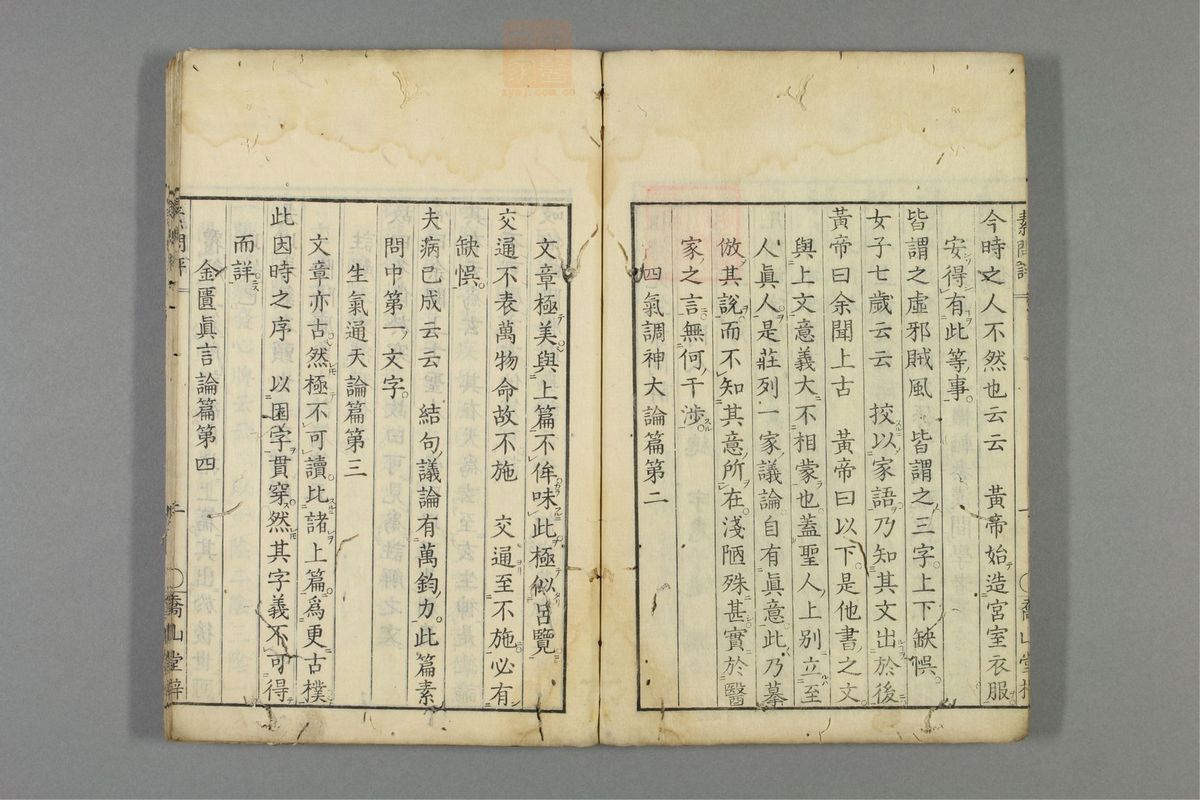 今時之人不然也云云　黃帝始造宮室衣服
安得有此等事
皆謂之虛邪賊風　皆謂之三字上下缺悞
女子七歲云云　挍以家語乃知其文出於後
黃帝曰余聞上古　黃帝曰以下是他書之文
與上文意義大不相蒙也蓋聖人上別立至
人眞人是莊列一家議論自有眞意此乃摹
倣其說而不知其意所在淺陋殊甚實於醫
家之言無何干涉
四氣調神大論篇第二
文章極美與上篇不侔味此極似呂覽
交通不表萬物命故不施　交通至不施必有
缺悞
夫病已成云云　結句議論有萬鈞力此篇素
問中第一文字
生氣通天論篇第三
文章亦古然極不可讀比諸上篇爲更古樸
此因時之序　以因字貫穿然其字義不可得
而詳
金匱眞言論篇第四
喬山堂梓